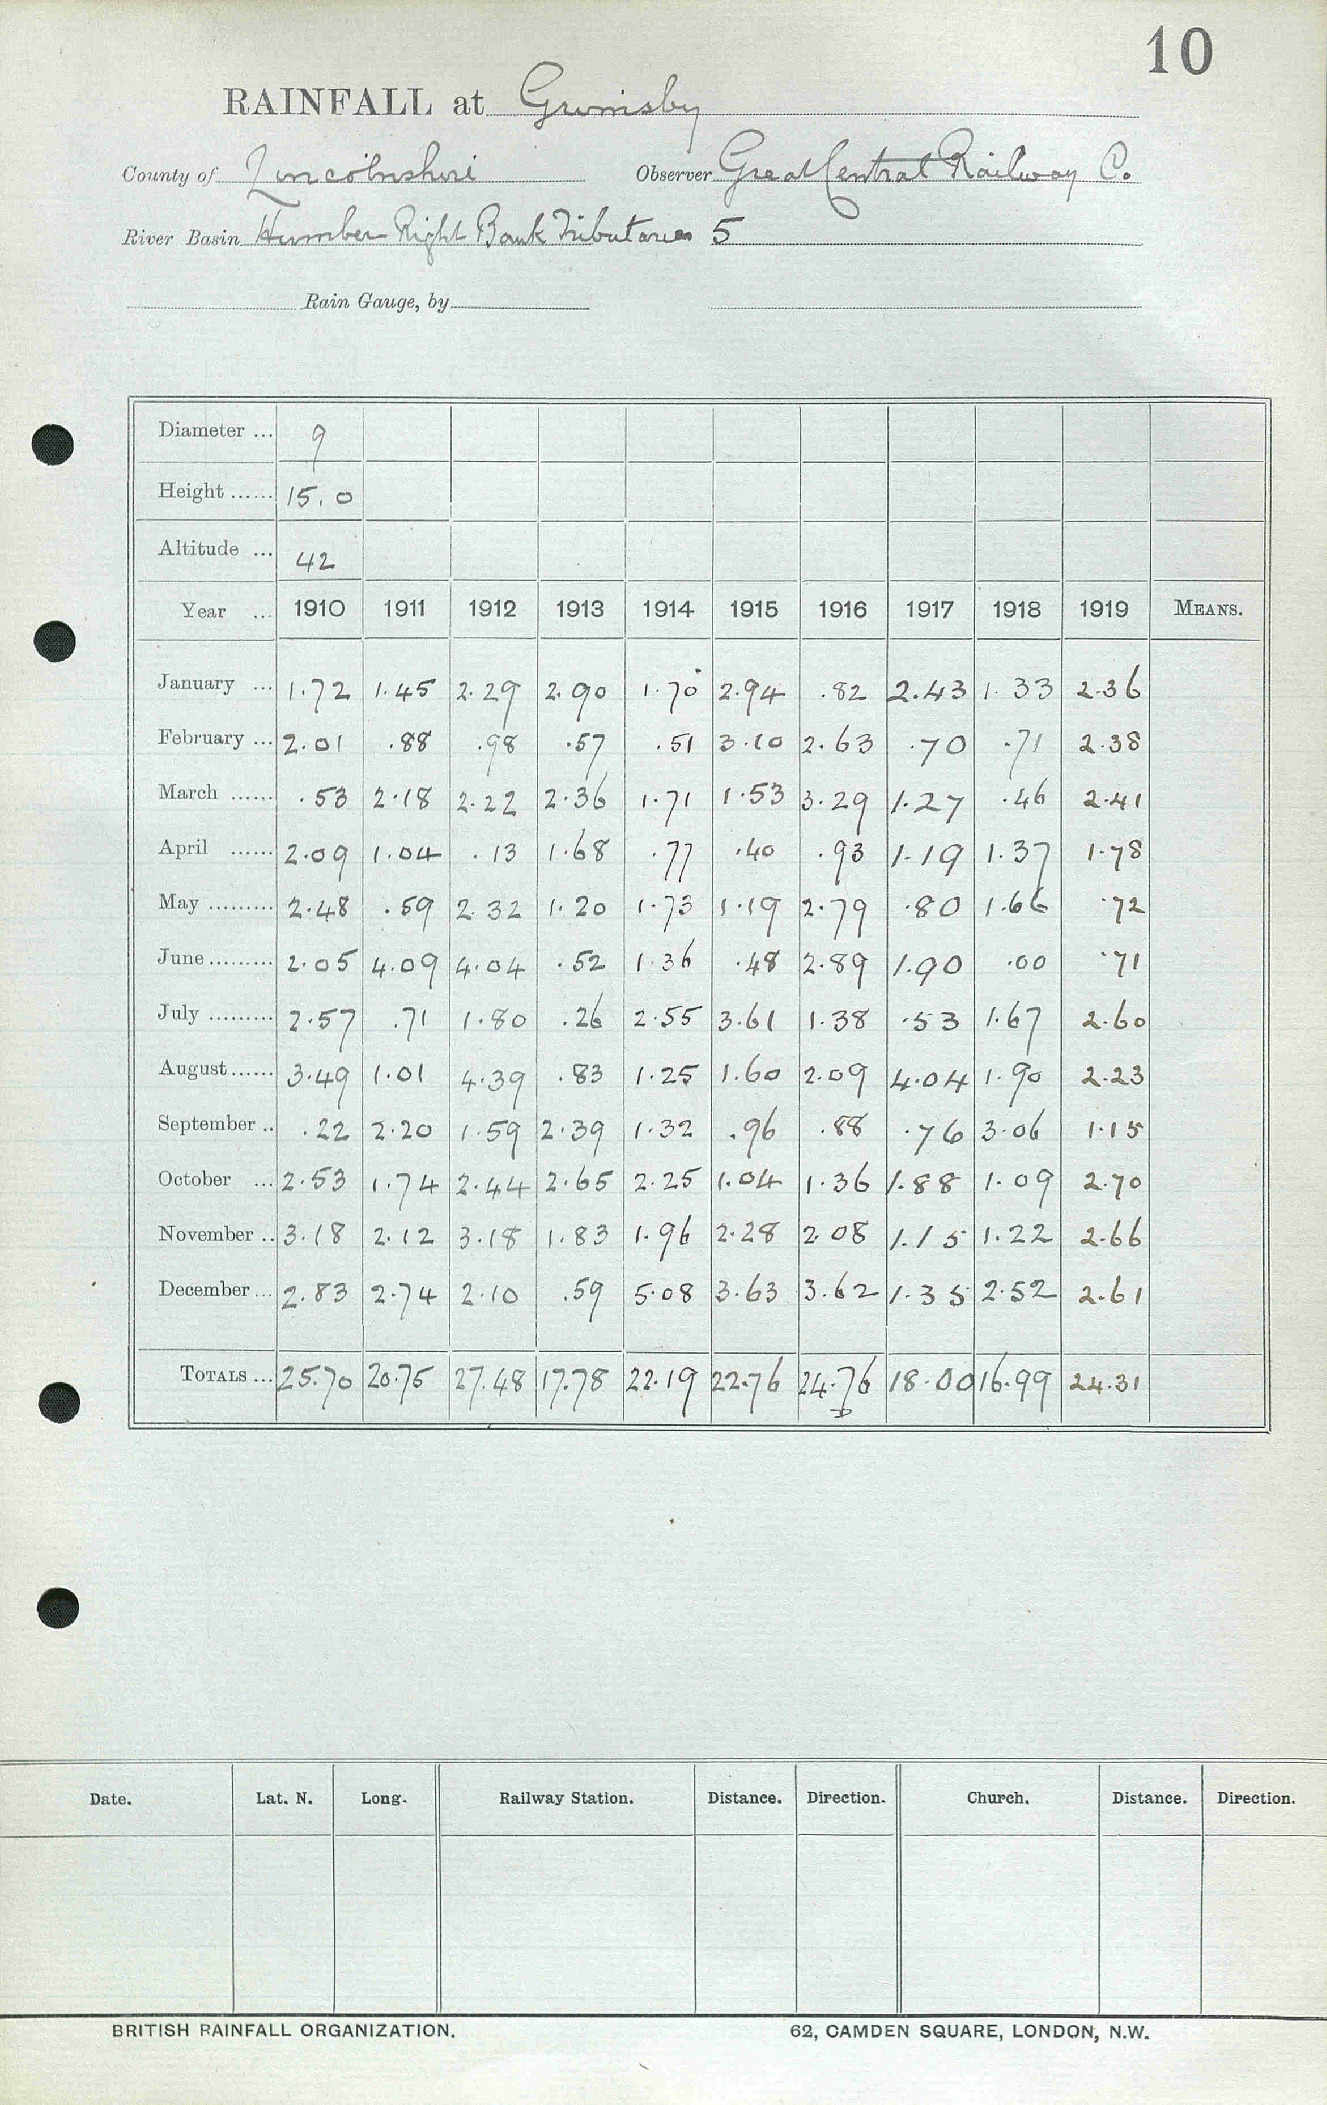 10
RAINFALL at Grimsby
County of Lincolnshire Observer Great Central Railway Co.
River Basin Humber Right Bank Tributaries 5
Rain Gauge, by
Diameter ... 9
Height ...... 15.0
Altitude ... 42
Year ... 1910 1911 1912 1913 1914 1915 1916 1917 1918 1919 MEANS.
January ... 1.72 1.45 2.29 2.90 1.70 2.94 .82 2.43 1.33 2.36
February ... 2.01 .88 .98 .57 .51 3.10 2.63 .70 .71 2.38
March ...... .53 2.18 2.22 2.36 1.71 1.53 3.29 1.27 .46 2.41
April ...... 2.09 1.04 .13 1.68 .77 .40 .93 1.19 1.37 1.78
May ......... 2.48 .59 2.32 1.20 1.73 1.19 2.79 .80 1.66 .72
June ......... 2.05 4.09 4.04 .52 1.36 .48 2.89 1.90 .00 .71
July ......... 2.57 .71 1.80 .26 2.55 3.61 1.38 .53 1.67 2.60
August ...... 3.49 1.01 4.39 .83 1.25 1.60 2.09 4.04 1.90 2.23
September .. .22 2.20 1.59 2.39 1.32 .96 .88 .76 3.06 1.15
October ... 2.53 1.74 2.44 2.65 2.25 1.04 1.36 1.88 1.09 2.70
November .. 3.18 2.12 3.18 1.83 1.96 2.28 2.08 1.15 1.22 2.66
December ... 2.83 2.74 2.10 .59 5.08 3.63 3.62 1.35 2.52 2.61
TOTALS ... 25.70 20.75 27.48 17.78 22.19 22.76 24.76 18.00 16.99 24.31
Date. Lat. N. Long. Railway Station. Distance. Direction. Church. Distance. Direction.
BRITISH RAINFALL ORGANIZATION. 62, CAMDEN SQUARE, LONDON, N.W.